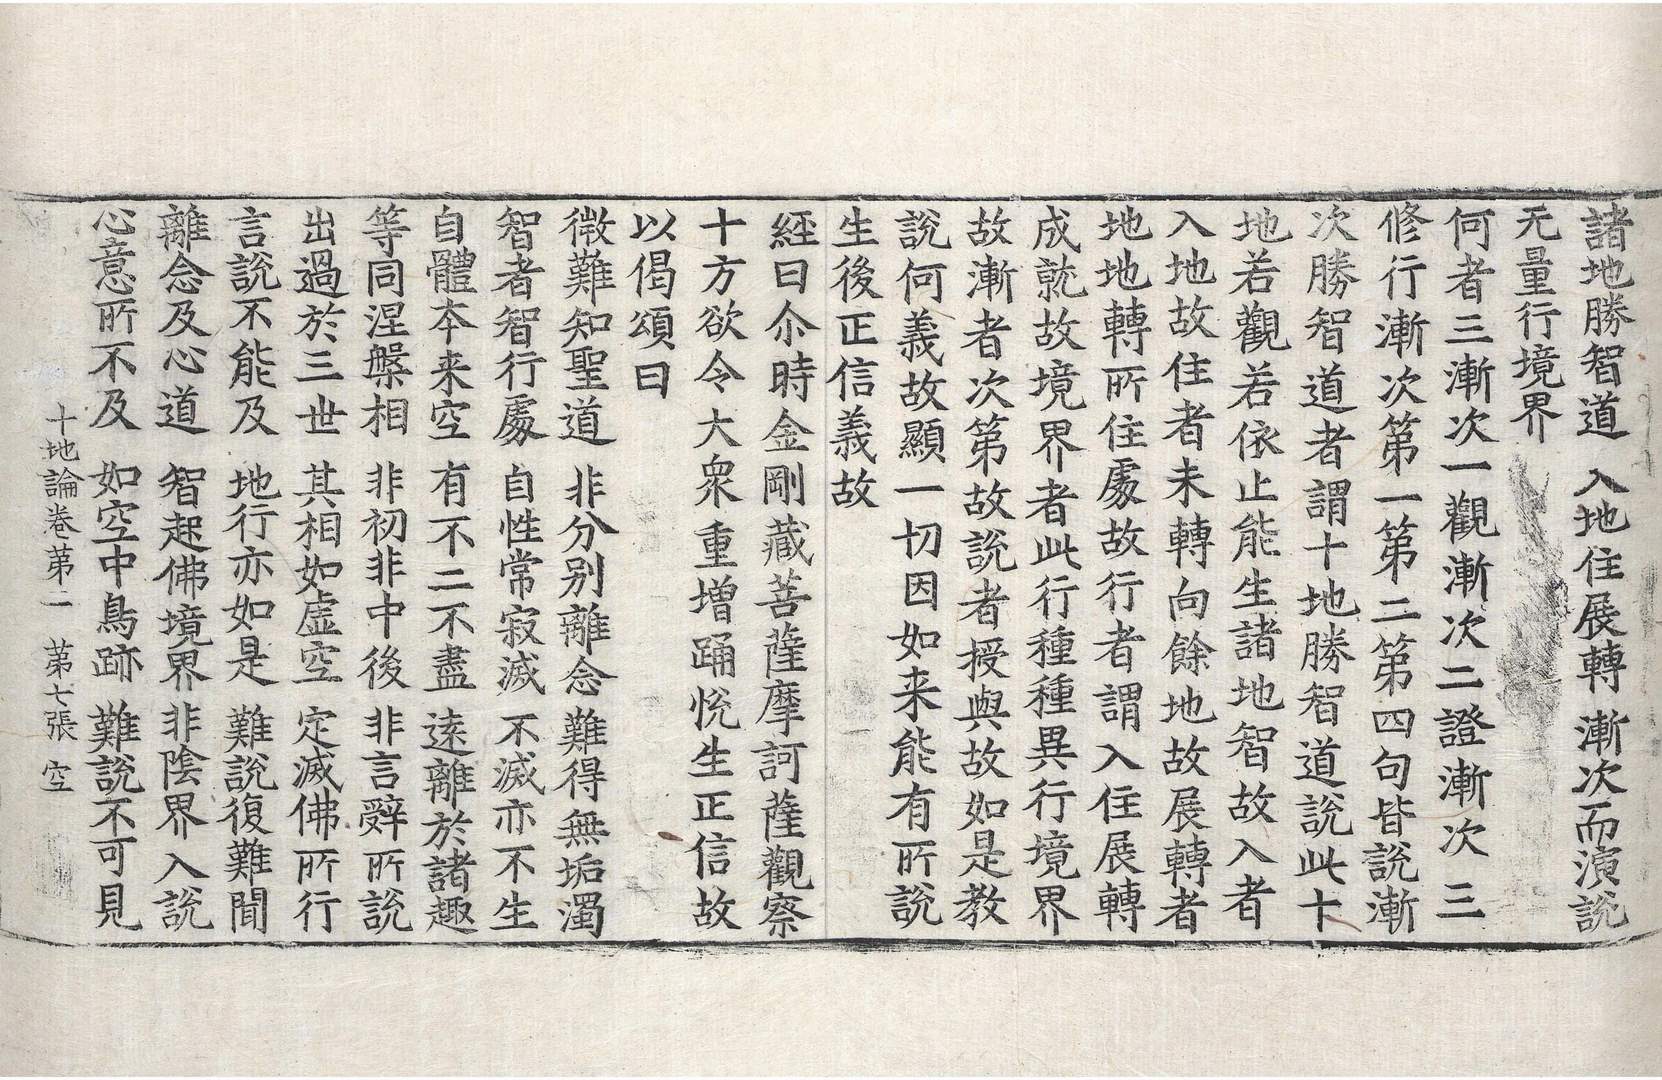 諸地勝智道 入地住展轉 漸次而演說
无量行境界
何者三漸次一觀漸次二證漸次三
修行漸次第一第二第四句皆說漸
次勝智道者謂十地勝智道說此十
地若觀若依止能生諸地智故入者
入地故住者未轉向餘地故展轉者
地地轉所住處故行者謂入住展轉
成就故境界者此行種種異行境界
故漸者次第故說者授與故如是教
說何義故顯一切因如来能有所說
生後正信義故
經曰尒時金剛藏菩薩摩訶薩觀察
十方欲令大衆重增踊悅生正信故
以偈頌曰
微難知聖道 非分別離念 難得無垢濁
智者智行處 自性常寂滅 不滅亦不生
自體本来空 有不二不盡 遠離於諸趣
等同涅槃相 非初非中後 非言辭所說
出過於三世 其相如虛空 定滅佛所行
言說不能及 地行亦如是 難說復難聞
離念及心道 智起佛境界 非陰界入說
心意所不及 如空中鳥跡 難說不可見
十地論卷第二 第七張 空